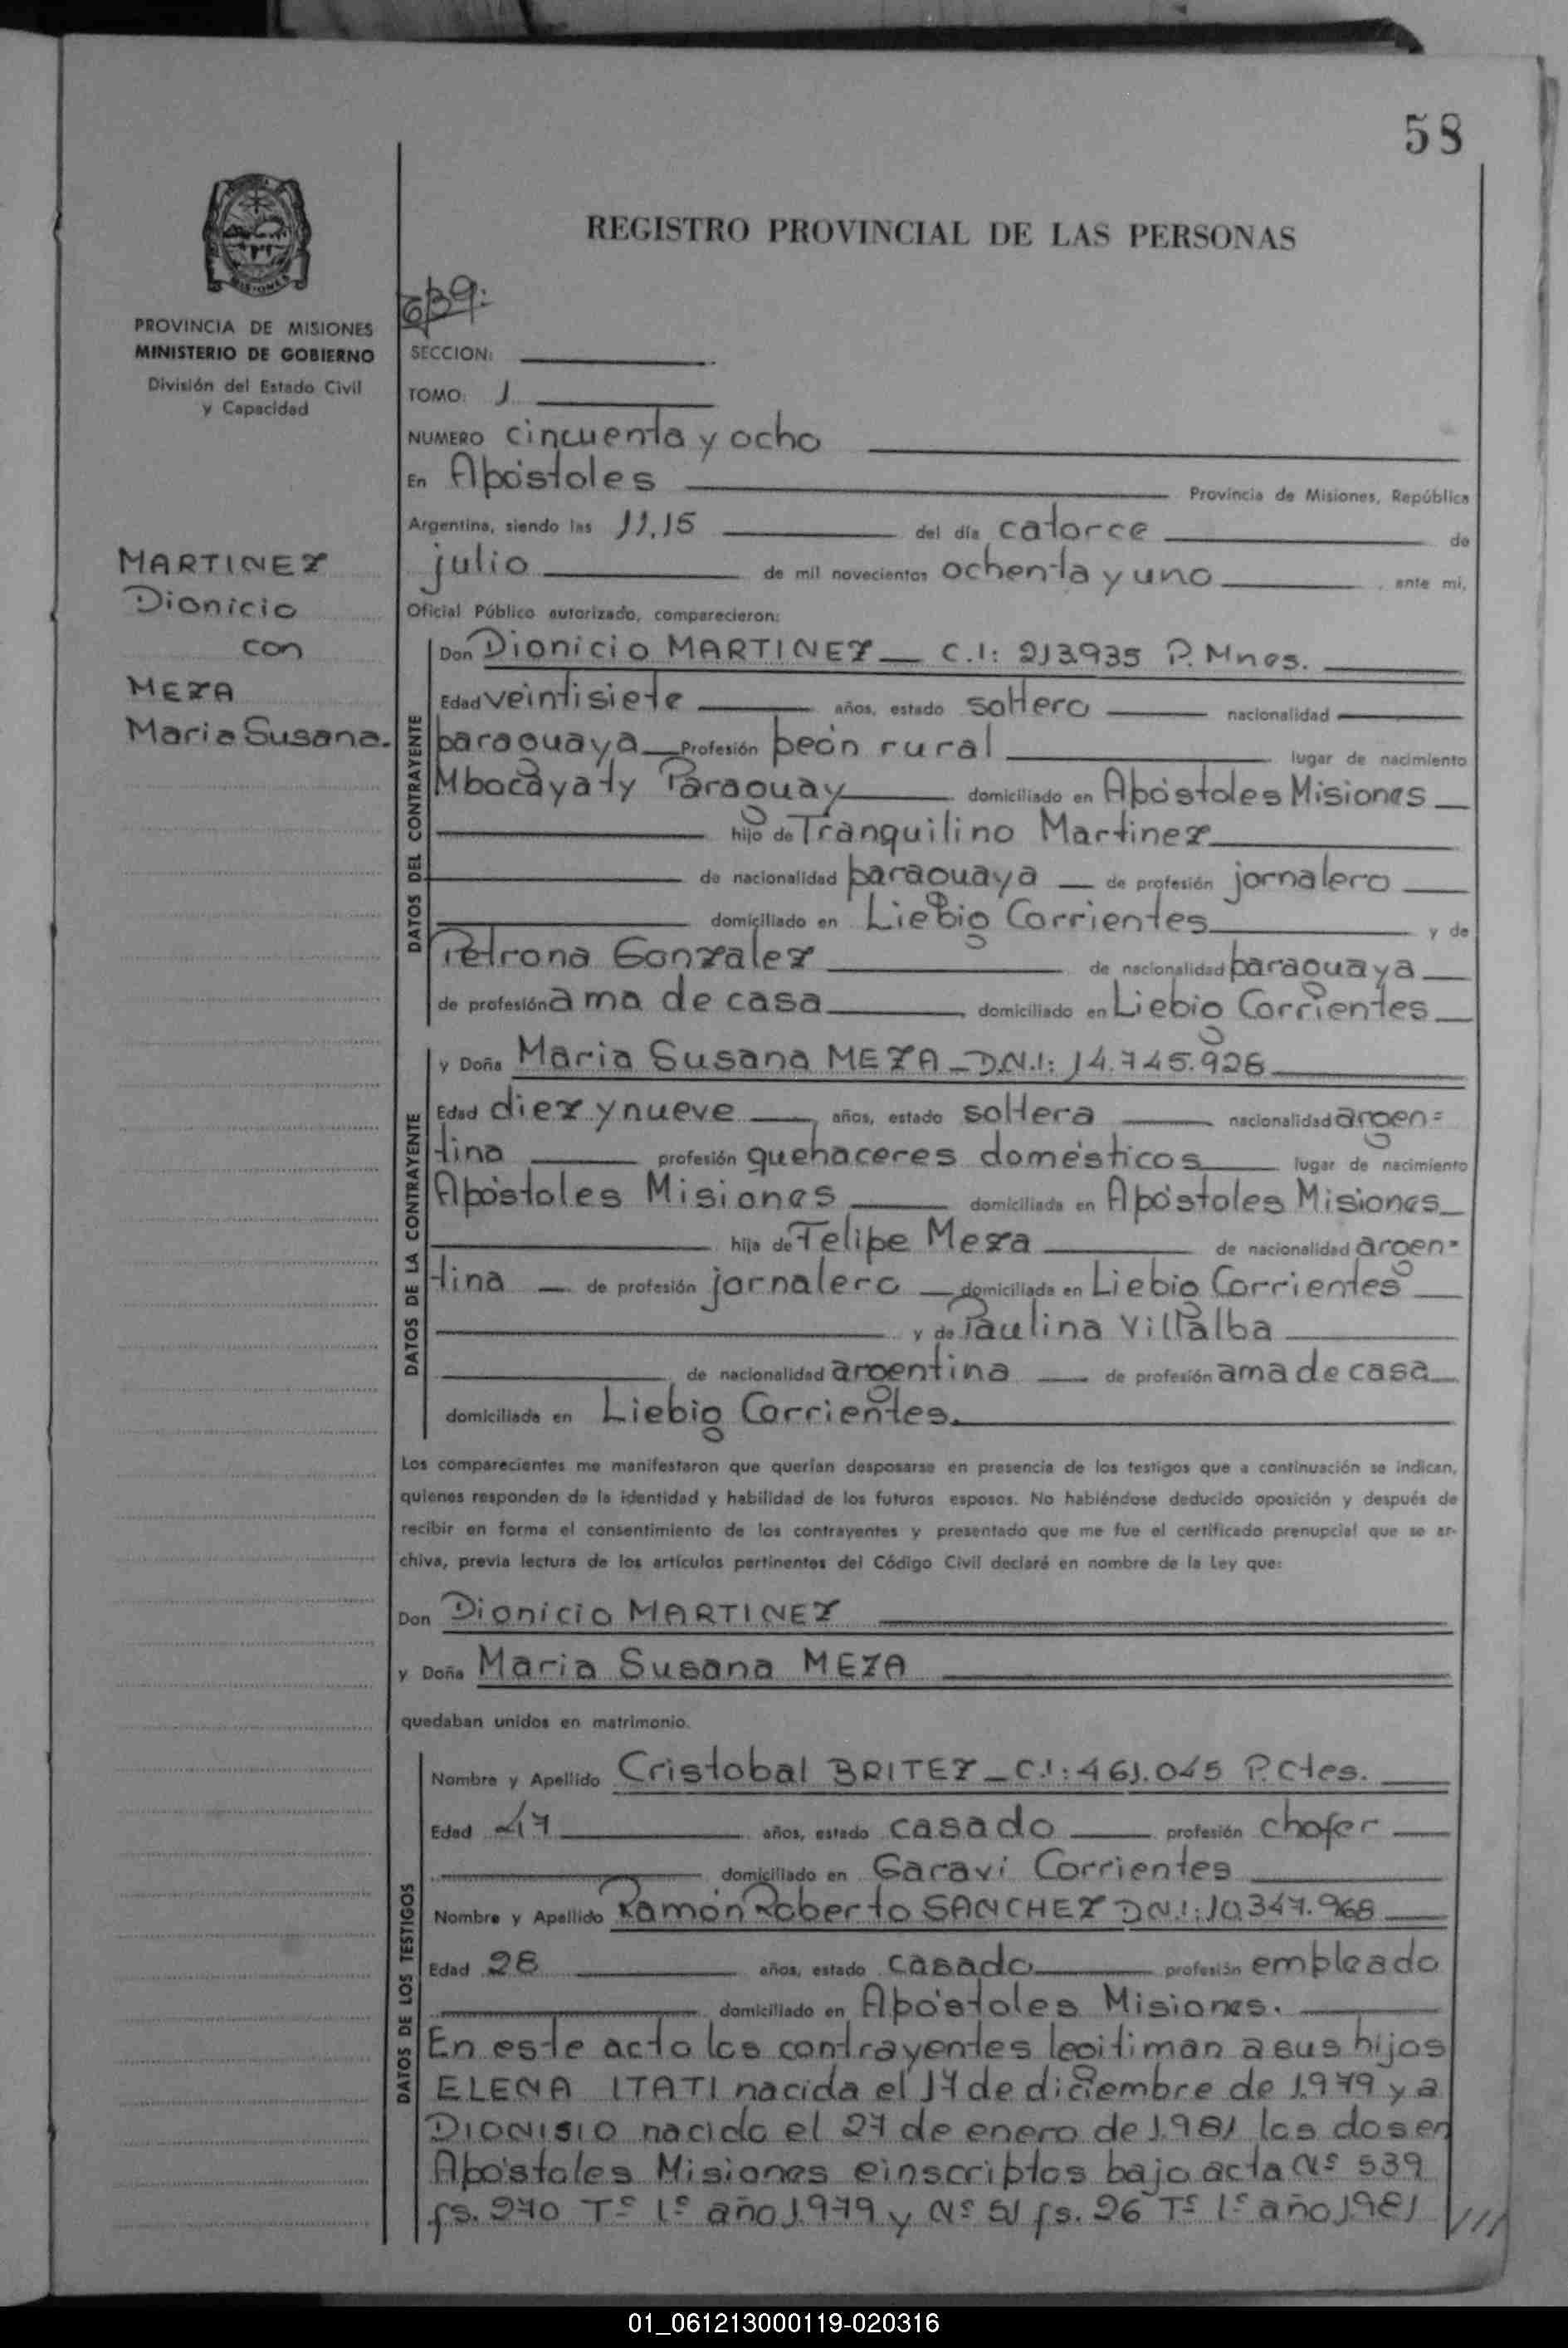 58
REGISTRO PROVINCIAL DE LAS PERSONAS
MISIONES
PROVINCIA DE MISIONES
MINISTERIO DE GOBIERNO
División del Estado Civil
y Capacidad
MARTINEZ
Dionicio
con
MEZA
Maria Susana.
SECCION:
TOMO: 1
NUMERO cincuenta y ocho
En Apóstoles Provincia de Misiones, República
Argentina, siendo las 11,15 del día catorce de
julio de mil novecientos ochenta y uno, ante mí,
Oficial Público autorizado, comparecieron:
DATOS DEL CONTRAYENTE
Don Dionicio MARTINEZ C.I: 213.935 P. Mnes.
Edad veintisiete años, estado soltero nacionalidad
paraguaya Profesión peón rural lugar de nacimiento
Mbocayaty Paraguay domiciliado en Apóstoles Misiones
hijo de Tranquilino Martinez
de nacionalidad paraguaya de profesión jornalero
domiciliado en Liebig Corrientes y de
Petrona Gonzalez de nacionalidad paraguaya
de profesión ama de casa, domiciliado en Liebig Corrientes
DATOS DE LA CONTRAYENTE
y Doña Maria Susana MEZA D.N.I: 14.745.926
Edad diez y nueve años, estado soltera nacionalidad argen=
tina profesión quehaceres domésticos lugar de nacimiento
Apóstoles Misiones domiciliada en Apóstoles Misiones
hija de Felipe Meza de nacionalidad argen=
tina de profesión jornalero domiciliada en Liebig Corrientes
y de Paulina Villalba
de nacionalidad argentina de profesión ama de casa
domiciliada en Liebig Corrientes.
Los comparecientes me manifestaron que querían desposarse en presencia de los testigos que a continuación se indican,
quienes responden de la identidad y habilidad de los futuros esposos. No habiéndose deducido oposición y después de
recibir en forma el consentimiento de los contrayentes y presentado que me fue el certificado prenupcial que se ar-
chiva, previa lectura de los artículos pertinentes del Código Civil declaré en nombre de la Ley que:
Don Dionicio MARTINEZ
y Doña Maria Susana MEZA
quedaban unidos en matrimonio.
DATOS DE LOS TESTIGOS
Nombre y Apellido Cristobal BRITEZ C.I: 461.045 P. Ctes.
Edad 47 años, estado casado profesión chofer
domiciliado en Garaví Corrientes
Nombre y Apellido Ramón Roberto SANCHEZ D.N.I: 10.347.968
Edad 28 años, estado casado profesión empleado
domiciliado en Apóstoles Misiones.
En este acto los contrayentes legitiman a sus hijos
ELENA ITATI nacida el 17 de diciembre de 1.979 y a
DIONISIO nacido el 27 de enero de 1.981 los dos en
Apóstoles Misiones e inscriptos bajo acta Nº 539
fs. 270 Tº 1º año 1.979 y Nº 51 fs. 26 Tº 1º año 1.981 ///
01_061213000119-020316